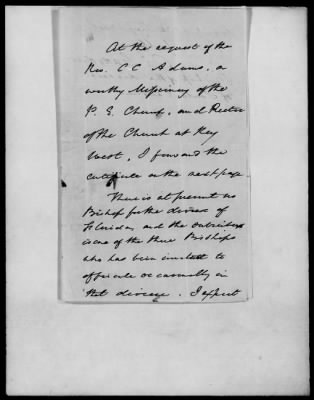 At the request of the
Rev. C C Adams, a
worthy Missionary of the
P. E. Church, and Rector
of the Church at Key
West, I forward the
certificate on the next page.
There is at present no
Bishop for the diocese of
Florida, and the undersigned
is one of the three Bishops
who has been invited to
officiate occasionally in
that diocese. I expect